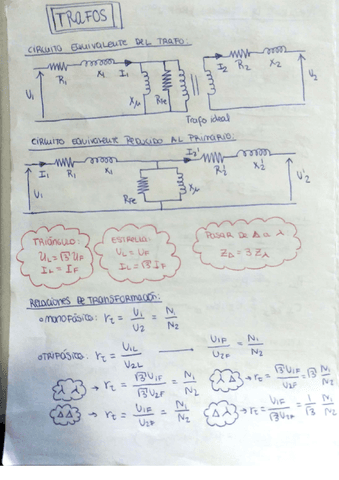 TRAFOS
CIRCUITO EQUIVALENTE DEL TRAFO:
R1 X1 I1 I2 R2 X2
U1 Xμ RFe U2
Trafo ideal
CIRCUITO EQUIVALENTE REDUCIDO AL PRIMARIO:
I1 R1 X1 I2' R2' X2'
U1 RFe Xμ U'2
TRIÁNGULO: ESTRELLA: PASAR DE Δ a λ
UL = √3 UF UL = UF ZΔ = 3Zλ
IL = IF IL = √3 IF
RELACIONES DE TRANSFORMACIÓN:
MONOFÁSICO: rt = U1/U2 = N1/N2
TRIFÁSICO: rt = U1L/U2L → U1F/U2F = N1/N2
λλ → rt = √3 U1F/√3 U2F = N1/N2 λΔ → rt = √3 U1F/U2F = √3 N1/N2
ΔΔ → rt = U1F/U2F = N1/N2 Δλ → rt = U1F/√3 U2F = 1/√3 N1/N2